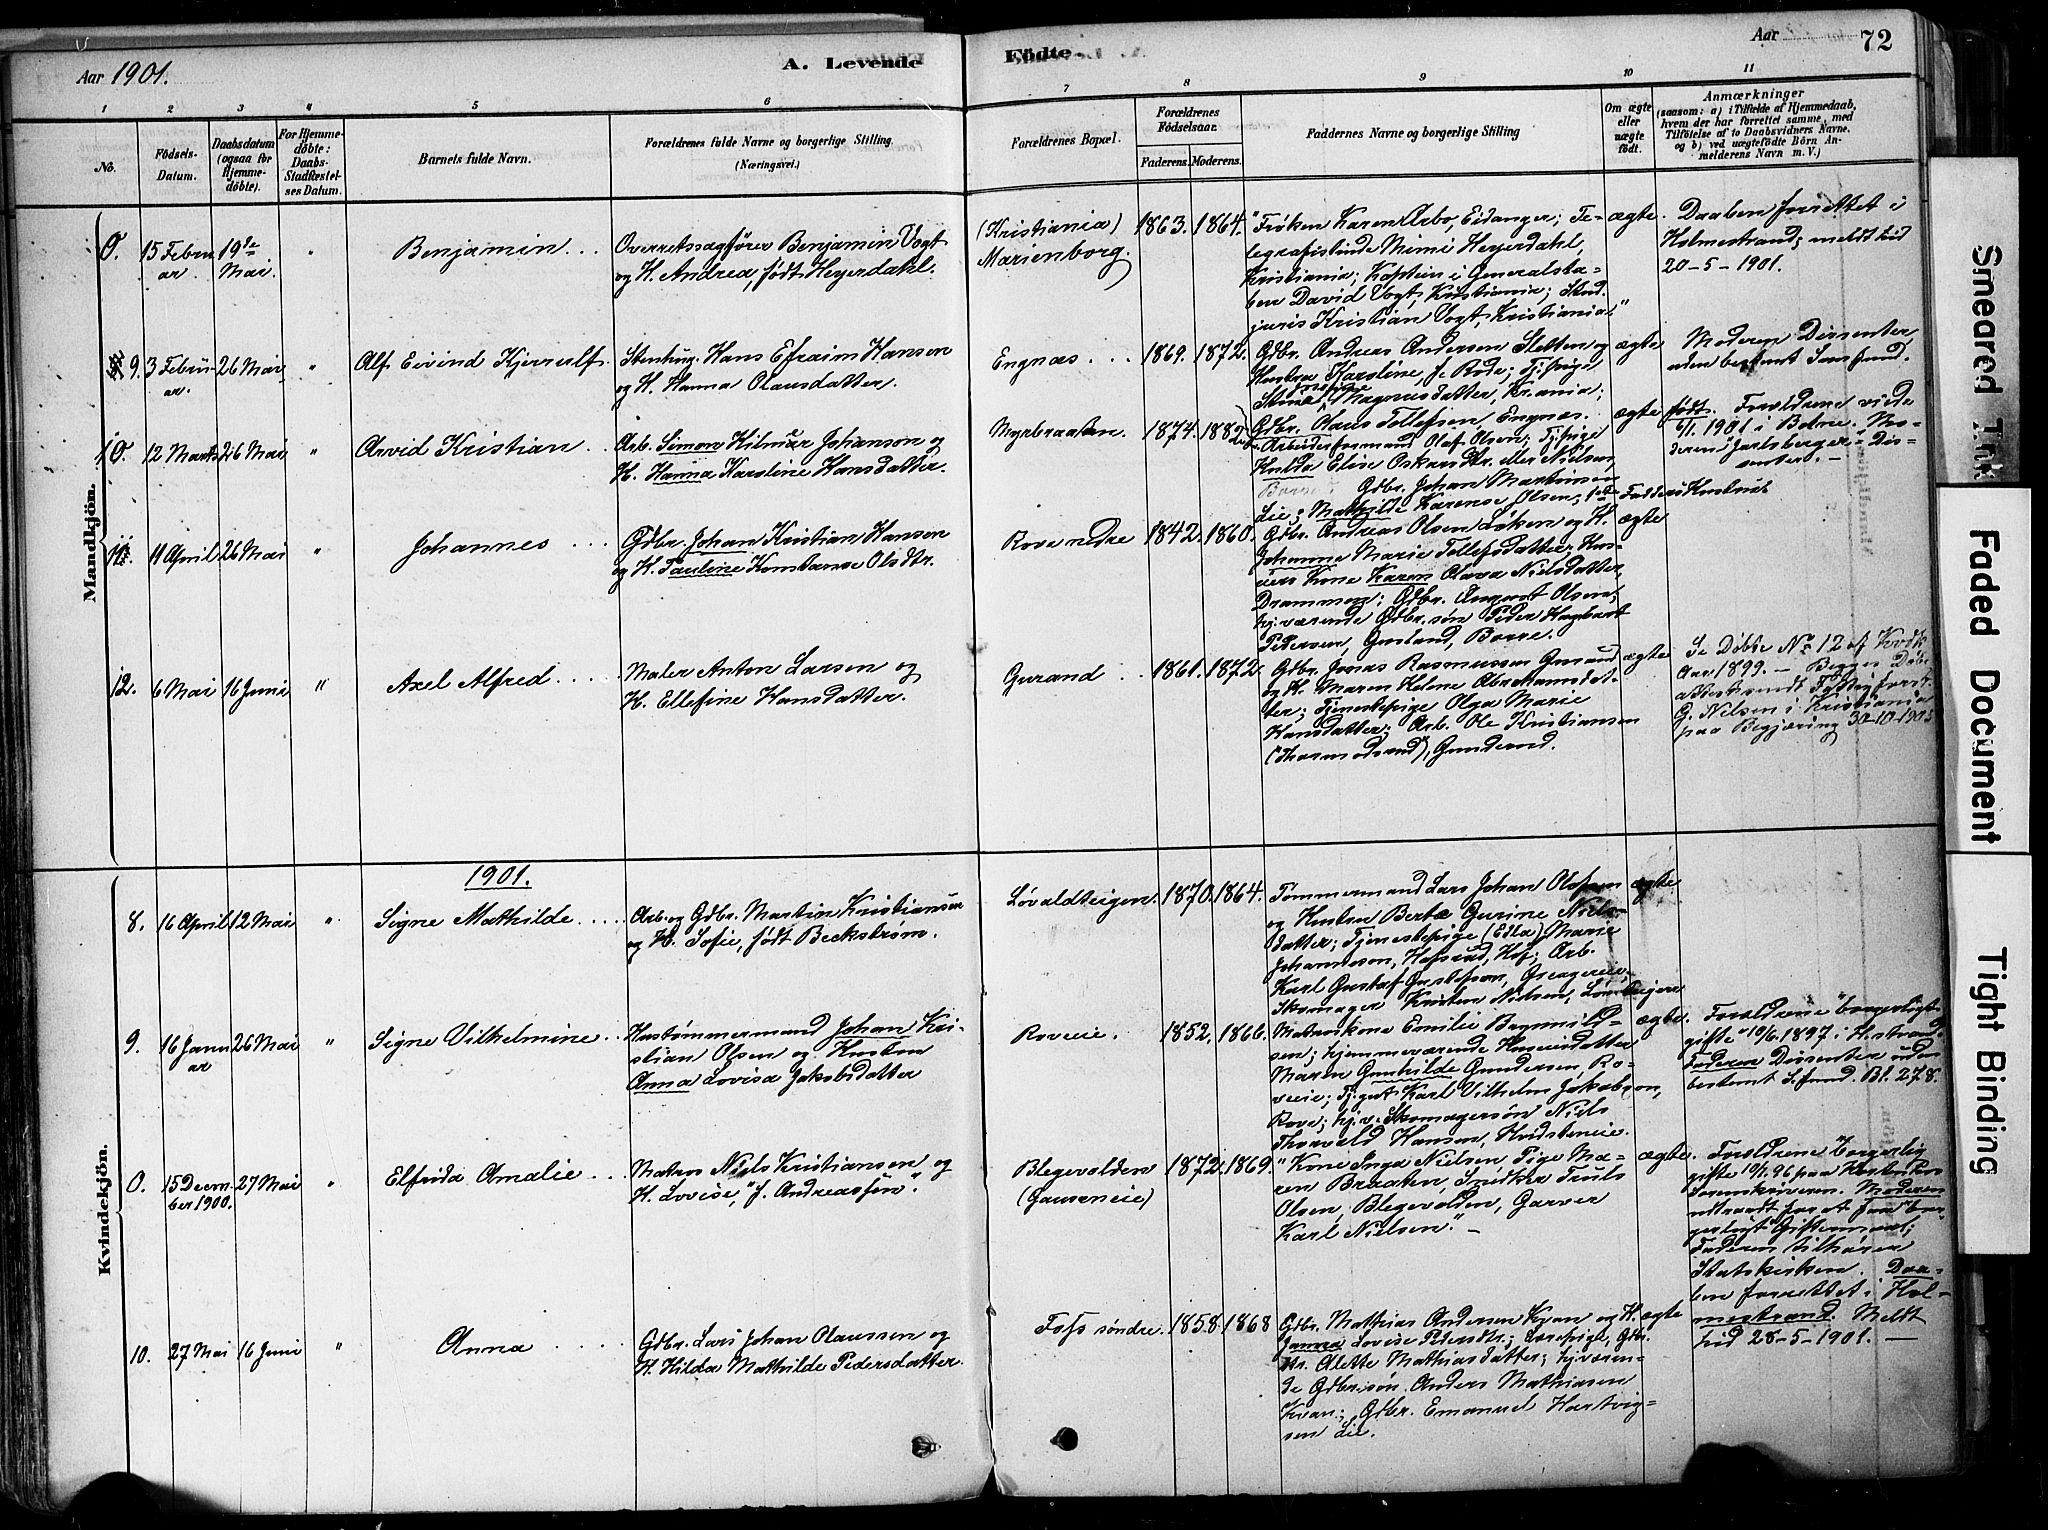 Aar 1901.
A. Levende
Födte
Aar
72
1 2 3 4 5 6 7 8 9 10 11
No.
Födsels-Datum.
Daabsdatum (ogsaa for Hjemmedöbte).
For Hjemmedöbte: Daabs-Stadfæstelses Datum.
Barnets fulde Navn.
Forældrenes fulde Navne og borgerlige Stilling
(Næringsvei.)
Forældrenes Bopæl.
Forældrenes Födselsaar.
Faderens. Moderens.
Faddernes Navne og borgerlige Stilling
Om ægte eller uægte födt.
Anmærkninger
(saasom: a) i Tilfælde af Hjemmedaab, hvem der har forrettet samme, med Tilföielse af to Daabsvidners Navne, og b) ved uægtefödte Börn Anmelderens Navn m. V.)
Mandkjön.
0. 15 Februar. 19de Mai. " Benjamin ...
Overretssagfører Benjamin Vogt
og H. Andrea, født Heyerdahl.
(Kristiania)
Marienborg.
1863. 1864.
"Frøken Karen Arbo, Eidanger; Te-
legrafistinde Mimi Heyerdahl,
Kristiania; Kaptein i Generalsta-
ben David Vogt, Kristiania; Stud.
juris Kristian Vogt, Kristiania."
ægte.
Daaben forrettet i
Holmestrand; meldt hid
20-5-1901.
9. 3 Februar. 26 Mai " Alf Eivind Kjerrulf.
Stenhug. Hans Efraim Hansen
og H. Hanna Olausdatter.
Engnæs ...
1869. 1872.
Gdbr. Andreas Andersen Sletten og
Hustru Karoline, f. Rode; Tj.pige
Magnusdatter, Kr.ania;
Gdbr. Olaus Tollefsen, Engnæs.
ægte
Moderen Dissenter
uden bestemt Samfund.
10. 12 Marts 26 Mai " Arvid Kristian ..
Arb. Simon Hilmar Johanson og
H. Hanna Karoline Hansdatter.
Myrbraaten.
1874. 1882.
Arbeidsformand Olaf Olsen; Tj.pige
Hulda Elise Oskarsdtr. eller Nielsen,
Borre; Gdbr. Johan Martinsen
Lie; Mathilde Karense Olsen, 1ste Fadders Hustru.
ægte født.
Forældrene viede
6/1 1901 i Botne. Mo-
deren "Jarlsberger"-Dis-
senter. —
11. 11 April 26 Mai " Johannes ...
Gdbr. Johan Kristian Hansen
og H. Pauline Konstanse Olsdtr.
Rove nedre
1842. 1860.
Gdbr. Andreas Olsen Løken og H.
Johanne Marie Tollefsdatter; Hus-
eiers Kone Karen Olava Nielsdatter,
Drammen; Gdbr. August Olsen;
hj.værende Gdbr.søn Peder Hagbart
Pedersen, Gusland, Borre.
ægte
12. 6 Mai 16 Juni " Axel Alfred ....
Maler Anton Larsen og
H. Ellefine Hansdatter.
Gurand ..
1861. 1872.
Gdbr. Jonas Rasmussen Grnand
og H. Maren Helene Abrahamsdat-
ter; Tjenestepige Olga Marie
Hansdatter; Arb. Ole Kristiansen
("Thormodsrud"), Gunderod.
ægte
Se Døbte No 12 af Kvdk.
Aar 1899. — Begges Døbe-
attest sendt Fattigforst.
G. Nielsen i Kristiania
paa Begjæring 30-10-1903
Kvindekjön.
1901.
8. 16 April 12 Mai " Signe Mathilde ....
Arb. og Gdbr. Martin Kristiansen
og H. Sofie, født Beckstrøm.
Løvaldteigen.
1870. 1864.
Tømmermand Lars Johan Olafsen
og Hustru Berte Gurine Niels-
datter; Tjenestepige (Edla) Marie
Johannesen, Hofsrud, Hof; Arb.
Karl Gustaf Gustafson,
Skomager Kristen Nielsen,
ægte
9. 16 Januar 26 Mai " Signe Vilhelmine ..
Hustømmermand Johan Kri-
stian Olsen og Hustru
Anna Lovisa Jakobsdatter
Roveeie.
1852. 1866.
Matroskone Emilie Brynnild-
sen; hjemmeværende Huseierdatter
Maren Gunhilde Gundersen, Ro-
veeie; Tj.gut Karl Vilhelm Jakobson,
Rove; hj.v. Skomagersøn Niels
Thorvald Hansen, Hvidsteneie.
ægte.
Forældrene "borgerligt
gifte" 10/6 1897 i H.strand.
Faderen Dissenter uden
bestemt S.fund. Bl. 278.
0. 15 December 1900. 27 Mai " Elfrida Amalie ...
Matros Niels Kristiansen og
H. Lovise, "f. Andreassen".
Blegevolden
(Gauseneie)
1872. 1869.
"Kone Inga Nielsen, Pige Ma-
ren Braaten, Snedker Truls
Olsen, Blegevolden, Garver
Karl Nielsen". —
ægte.
Forældrene "borgerlig
gifte 10/1 96 paa Kontoret
Sorenskriveren. Moderen
udtraadt for at faa bor-
gerligt Giftermaal;
Faderen tilhører
Statskirken. Daa-
ben forrettet i Hol-
mestrand. Meldt
hid 28-5-1901. —
10. 27 Mai 16 Juni " Anna ....
Gdbr. Lars Johan Olaussen og
H. Hilda Mathilde Pedersdatter.
Fos søndre.
1858. 1868
Gdbr. Mathias Andersen Kvan og H.
Janna Lovise Pedersdtr; Pige, Gdbr.
dtr. Alette Mathiasdatter; hj.væren-
de Gdbr.søn Anders Mathiasen
Kvan; Gdbr. Emanuel Hartvig-
sen Lie.
ægte
Smeared Ink
Faded Document
Tight Binding